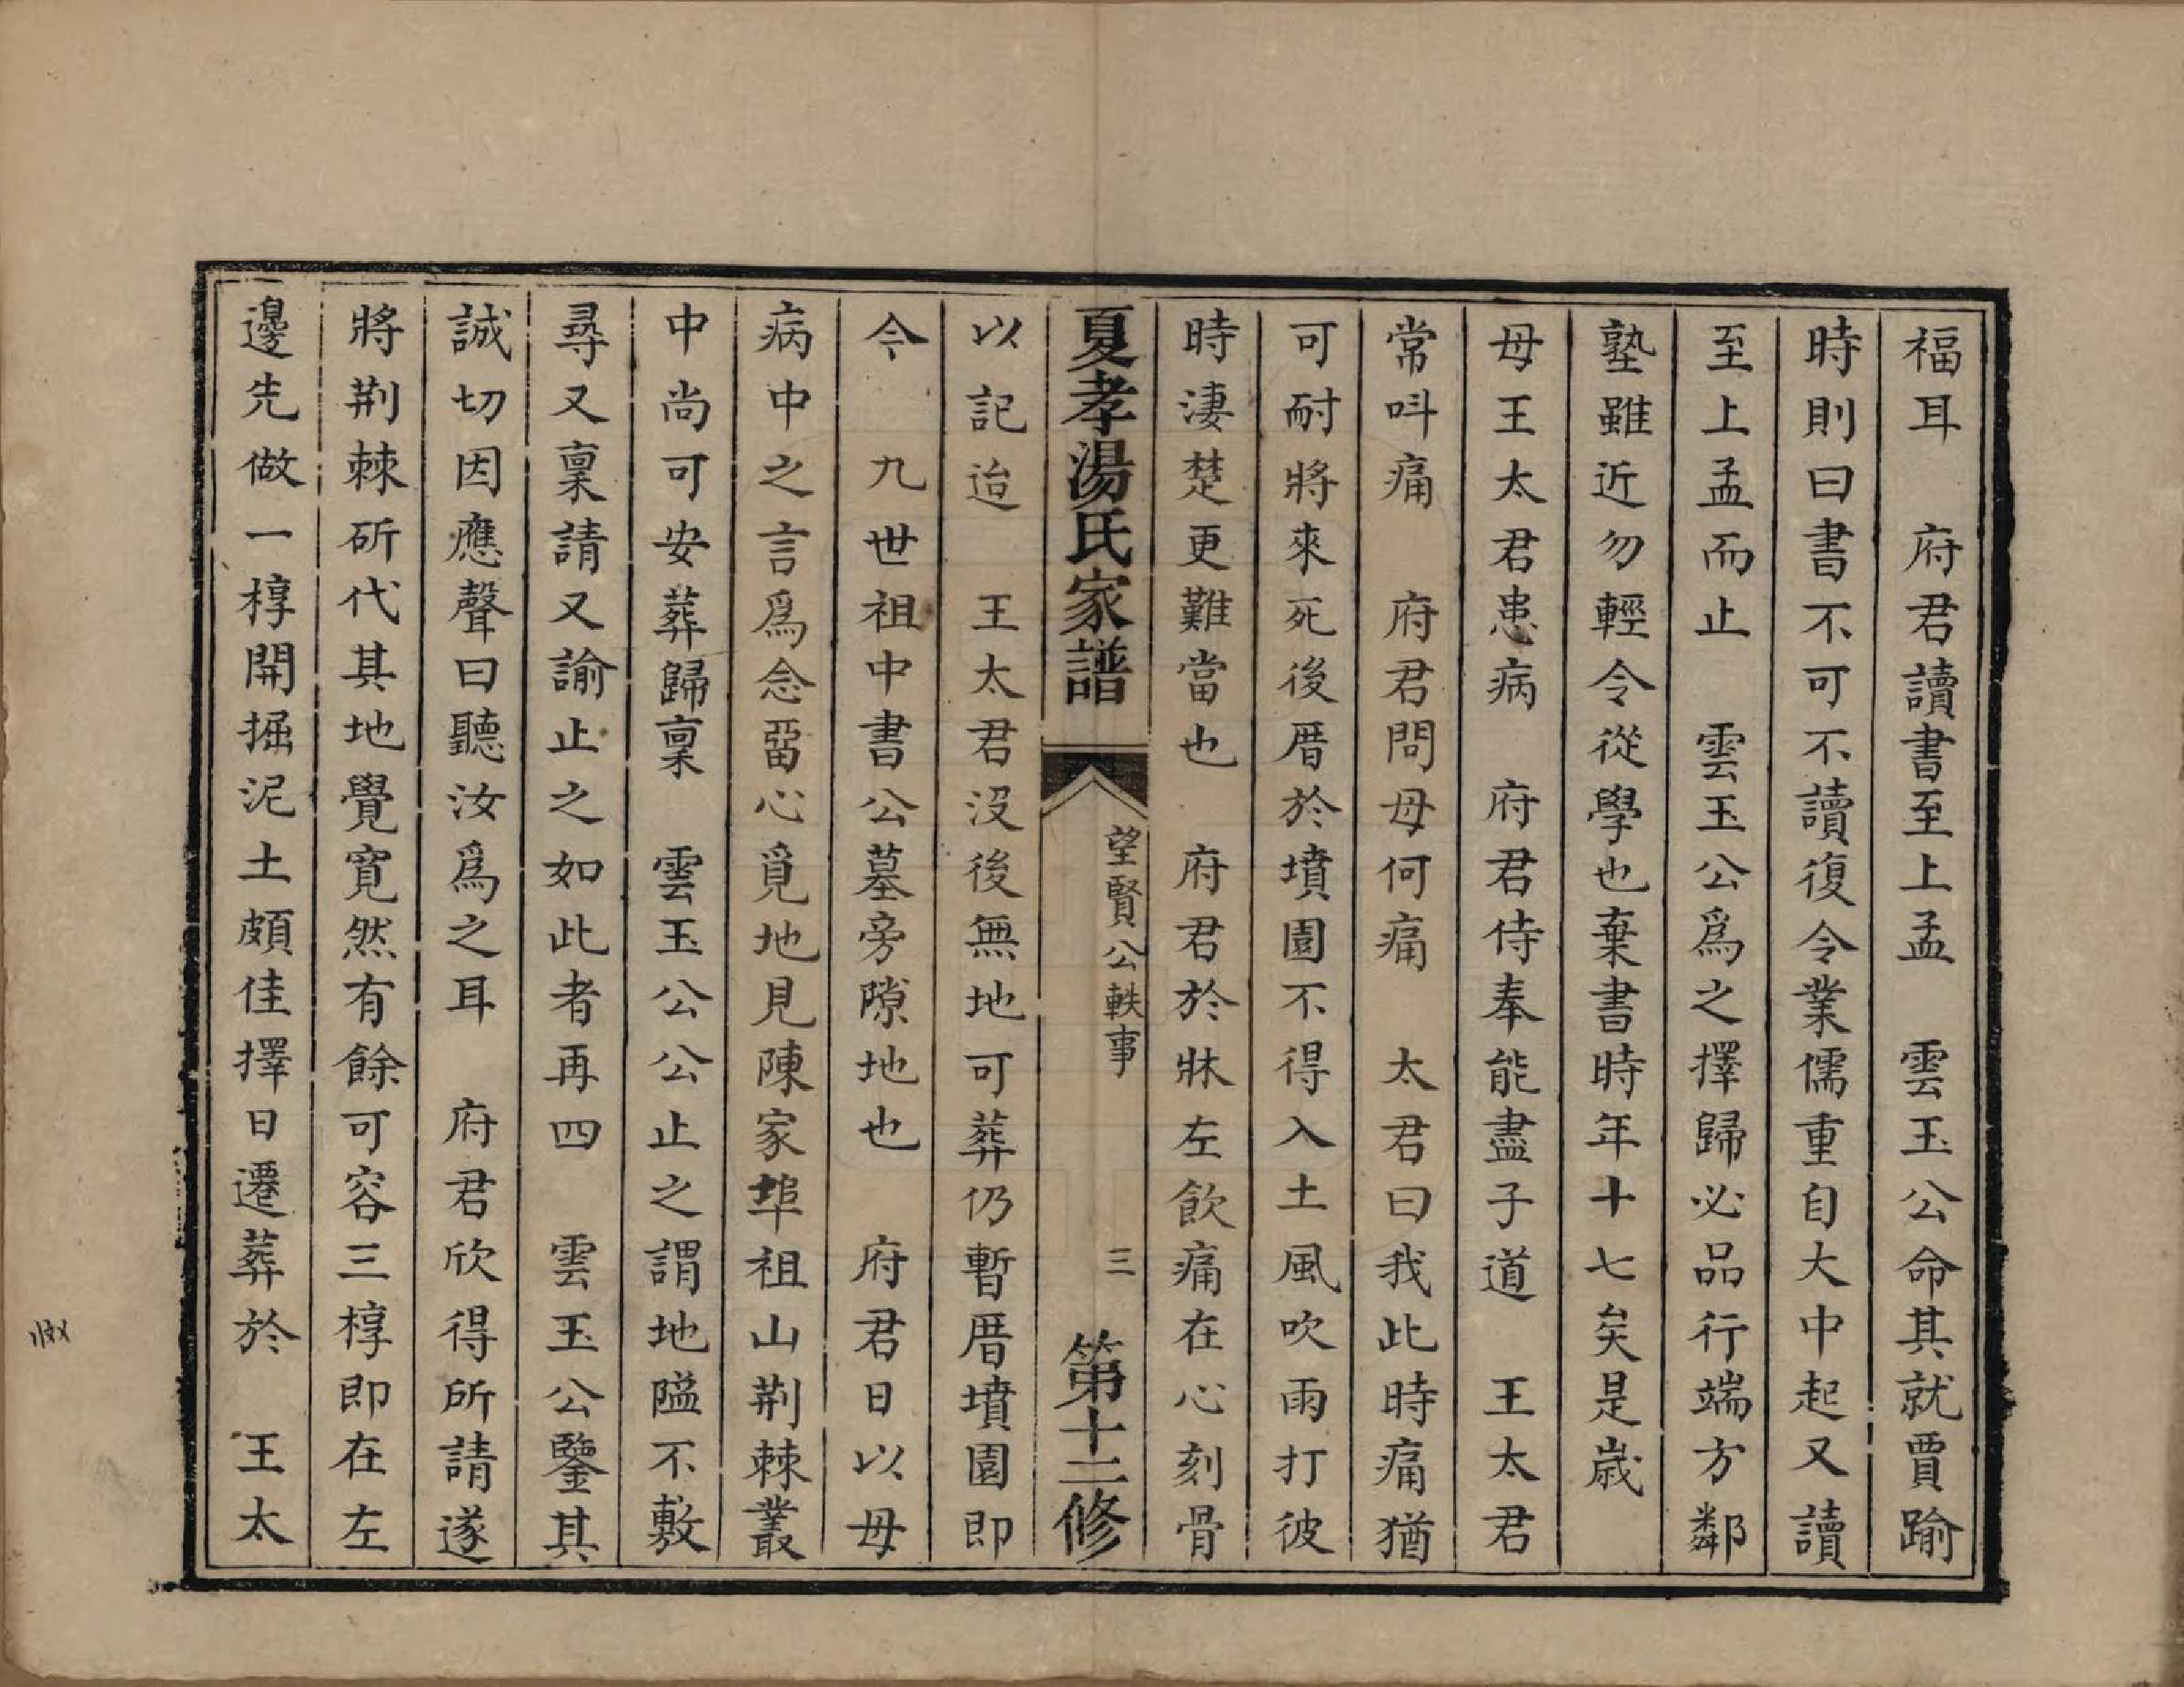 福耳　府君讀書至上孟　雲玉公命其就賈踰
時則曰書不可不讀復令業儒重自大中起又讀
至上孟而止　雲玉公爲之擇歸必品行端方鄰
塾雖近勿輕令從學也棄書時年十七矣是歲
母王太君患病　府君侍奉能盡子道　王太君
常呌痛　府君問母何痛　太君曰我此時痛猶
可耐將來死後厝於墳園不得入土風吹雨打彼
時淒楚更難當也　府君於牀左飲痛在心刻骨
夏孝湯氏家譜　望賢公軼事　三　第十二修
以記迨　王太君沒後無地可葬仍暫厝墳園即
今　九世祖中書公墓旁隙地也　府君日以母
病中之言爲念畱心覓地見陳家埠祖山荆棘叢
中尚可安葬歸稟　雲玉公公止之謂地隘不敷
尋又稟請又諭止之如此者再四　雲玉公鑒其
誠切因應聲曰聽汝爲之耳　府君欣得所請遂
將荆棘斫代其地覺寛然有餘可容三椁即在左
邊先做一椁開掘泥土頗佳擇日遷葬於　王太